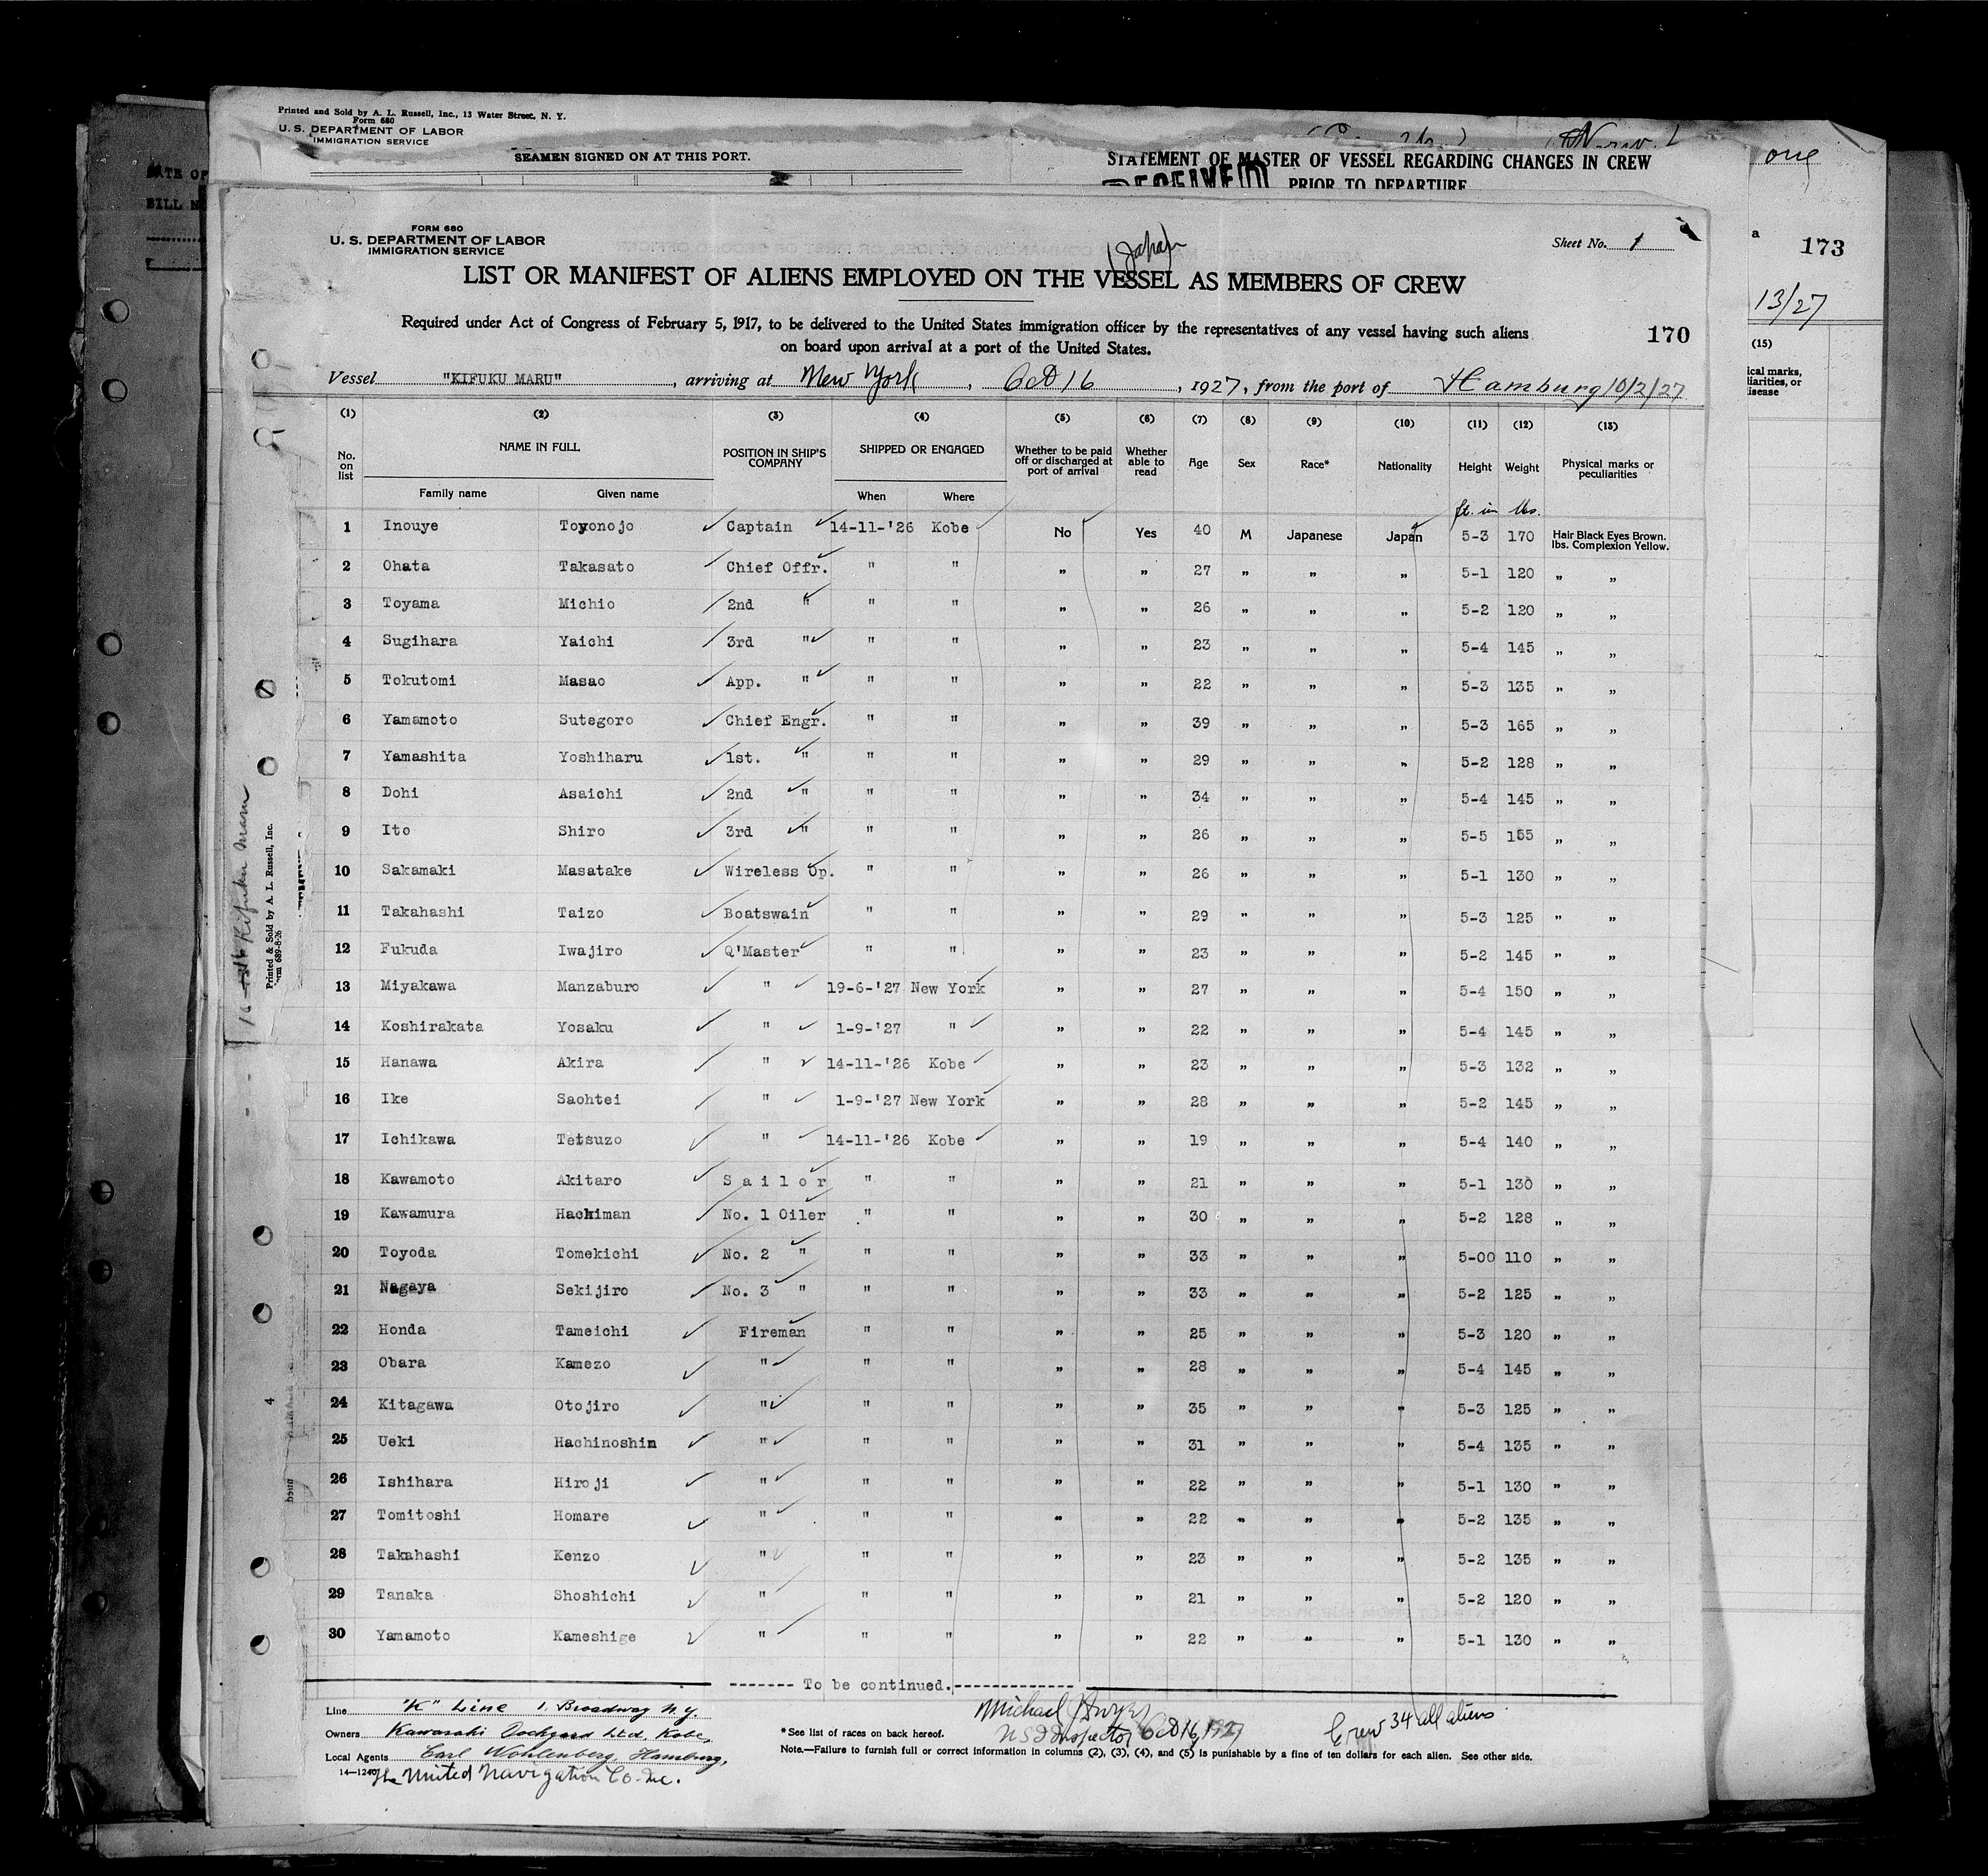 Printed and Sold by A. L. Russell, Inc., 13 Water Street, N. Y.
Form 680
U. S. DEPARTMENT OF LABOR
IMMIGRATION SERVICE
SEAMEN SIGNED ON AT THIS PORT.
STATEMENT OF MASTER OF VESSEL REGARDING CHANGES IN CREW
PRIOR TO DEPARTURE
RECEIVED
173
13/27
(15)
FORM 680
U. S. DEPARTMENT OF LABOR
IMMIGRATION SERVICE
(Japan)
Sheet No. 1
LIST OR MANIFEST OF ALIENS EMPLOYED ON THE VESSEL AS MEMBERS OF CREW
Required under Act of Congress of February 5, 1917, to be delivered to the United States immigration officer by the representatives of any vessel having such aliens
on board upon arrival at a port of the United States.
170
Vessel "KIFUKU MARU", arriving at New York, Oct 16, 1927, from the port of Hamburg 10/2/27
(1) (2) (3) (4) (5) (6) (7) (8) (9) (10) (11) (12) (13)
No. on list NAME IN FULL POSITION IN SHIP'S COMPANY SHIPPED OR ENGAGED Whether to be paid off or discharged at port of arrival Whether able to read Age Sex Race* Nationality Height Weight Physical marks or peculiarities
Family name Given name When Where
ft. in lbs.
1 Inouye Toyonojo Captain 14-11-'26 Kobe No Yes 40 M Japanese Japan 5-3 170 Hair Black Eyes Brown. lbs. Complexion Yellow.
2 Ohata Takasato Chief Offr. " " " " 27 " " " 5-1 120 " "
3 Toyama Michio 2nd " " " " " 26 " " " 5-2 120 " "
4 Sugihara Yaichi 3rd " " " " " 23 " " " 5-4 145 " "
5 Tokutomi Masao App. " " " " " 22 " " " 5-3 135 " "
6 Yamamoto Sutegoro Chief Engr. " " " " 39 " " " 5-3 165 " "
7 Yamashita Yoshiharu 1st. " " " " " 29 " " " 5-2 128 " "
8 Dohi Asaichi 2nd " " " " " 34 " " " 5-4 145 " "
9 Ito Shiro 3rd " " " " " 26 " " " 5-5 155 " "
10 Sakamaki Masatake Wireless Op. " " " " 26 " " " 5-1 130 " "
11 Takahashi Taizo Boatswain " " " " 29 " " " 5-3 125 " "
12 Fukuda Iwajiro Q'Master " " " " 23 " " " 5-2 145 " "
13 Miyakawa Manzaburo " 19-6-'27 New York " " 27 " " " 5-4 150 " "
14 Koshirakata Yosaku " 1-9-'27 " " " 22 " " " 5-4 145 " "
15 Hanawa Akira " 14-11-'26 Kobe " " 23 " " " 5-3 132 " "
16 Ike Saohtei " 1-9-'27 New York " " 28 " " " 5-2 145 " "
17 Ichikawa Tetsuzo " 14-11-'26 Kobe " " 19 " " " 5-4 140 " "
18 Kawamoto Akitaro Sailor " " " " 21 " " " 5-1 130 " "
19 Kawamura Hachiman No. 1 Oiler " " " " 30 " " " 5-2 128 " "
20 Toyoda Tomekichi No. 2 " " " " " 33 " " " 5-00 110 " "
21 Nagaya Sekijiro No. 3 " " " " " 33 " " " 5-2 125 " "
22 Honda Tameichi Fireman " " " " 25 " " " 5-3 120 " "
23 Obara Kamezo " " " " " 28 " " " 5-4 145 " "
24 Kitagawa Otojiro " " " " " 35 " " " 5-3 125 " "
25 Ueki Hachinoshin " " " " " 31 " " " 5-4 135 " "
26 Ishihara Hiroji " " " " " 22 " " " 5-1 130 " "
27 Tomitoshi Homare " " " " " 22 " " " 5-2 135 " "
28 Takahashi Kenzo " " " " " 23 " " " 5-2 135 " "
29 Tanaka Shoshichi " " " " " 21 " " " 5-2 120 " "
30 Yamamoto Kameshige " " " " " 22 " " " 5-1 130 " "
------- To be continued. -------------
Line "K" Line 1. Broadway N.Y.
Owners Kawasaki Dockyard Ltd. Kobe,
Local Agents Carl Wohlenberg, Hamburg,
14—1240
The United Navigation Co. Inc.
Michael
U S Inspector Oct 16, 1927
Crew 34 all aliens
*See list of races on back hereof.
Note.—Failure to furnish full or correct information in columns (2), (3), (4), and (5) is punishable by a fine of ten dollars for each alien. See other side.
Kifuku Maru
Printed & Sold by A. L. Russell, Inc.
Form 689-8-26
4